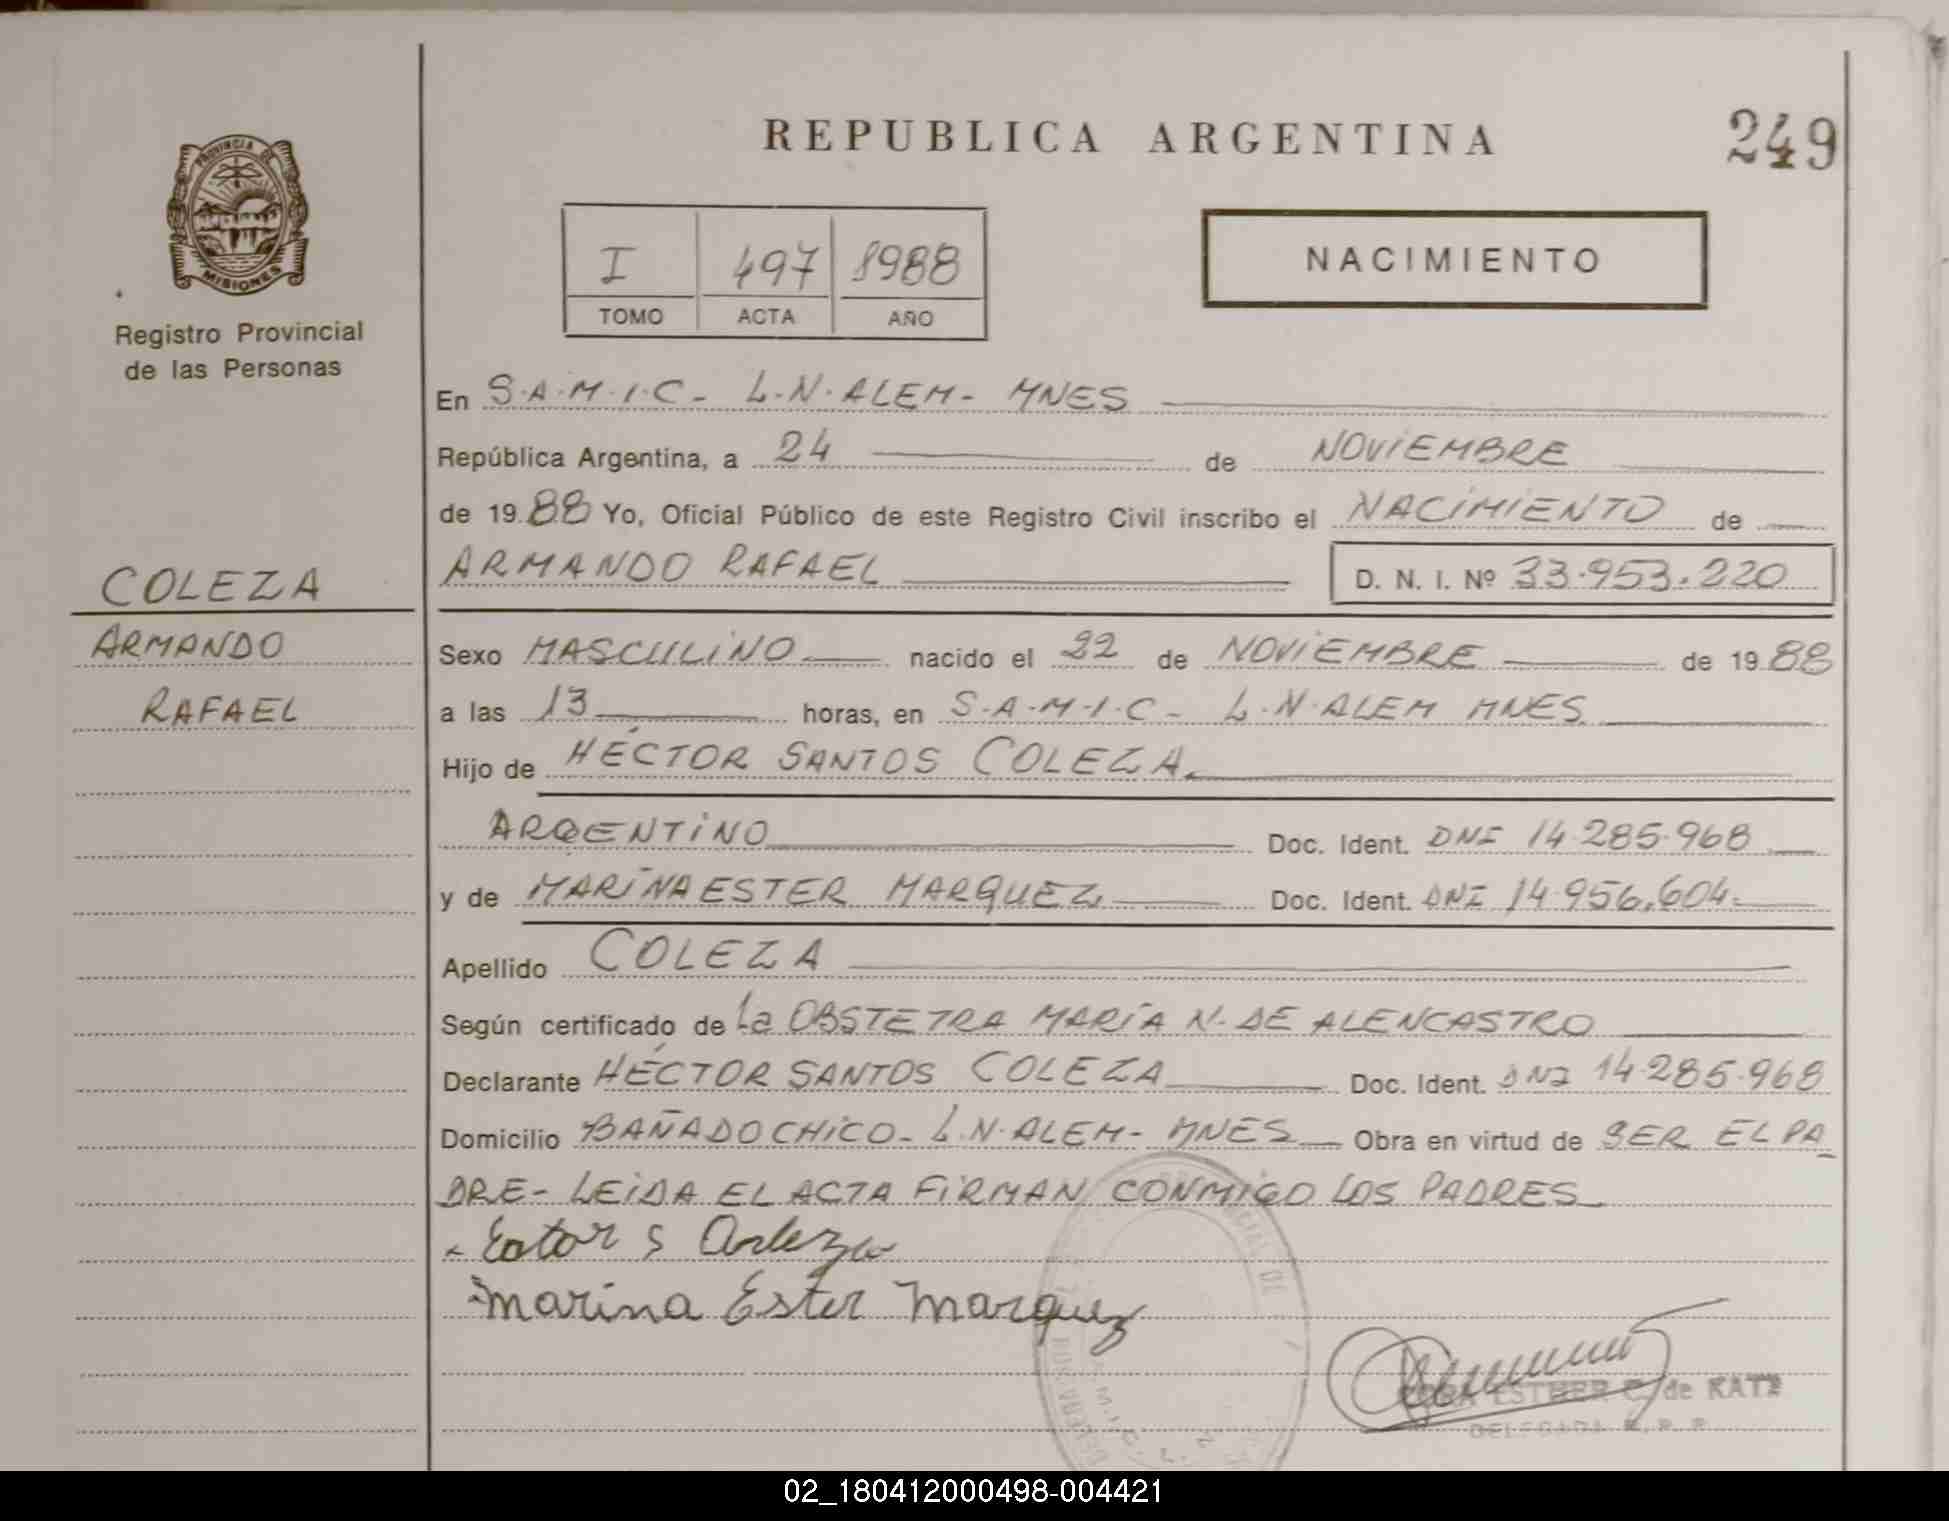 REPUBLICA ARGENTINA
249
PROVINCIA DE
MISIONES
Registro Provincial
de las Personas
I 497 1988
TOMO ACTA AÑO
NACIMIENTO
En S.A.M.I.C- L.N.ALEM- MNES
República Argentina, a 24 de NOViEMBRE
de 1988 Yo, Oficial Público de este Registro Civil inscribo el NACiMiENTO de
ARMANDO RAFAEL D. N. I. Nº 33.953.220
COLEZA
ARMANDO
RAFAEL
Sexo MASCULiNO nacido el 22 de NOViEMBRE de 1988
a las 13 horas, en S.A.M.I.C- L.N.ALEM MNES
Hijo de HÉCTOR SANTOS COLEZA.
ARGENTiNO Doc. Ident. DNI 14.285.968
y de MARiNA ESTER MARQUEZ Doc. Ident. DNI 14.956.604.
Apellido COLEZA
Según certificado de La OBSTETRA MARÍA N. DE ALENCASTRO
Declarante HÉCTOR SANTOS COLEZA Doc. Ident. DNI 14.285.968
Domicilio BAÑADO CHiCO- L.N.ALEM- MNES Obra en virtud de SER EL PA
DRE- LEiDA EL ACTA FiRMAN CONMIGO LOS PADRES
Marina Ester Marquez
ESTHER C. de KATZ
DELEGADA R. P. P.
02_180412000498-004421